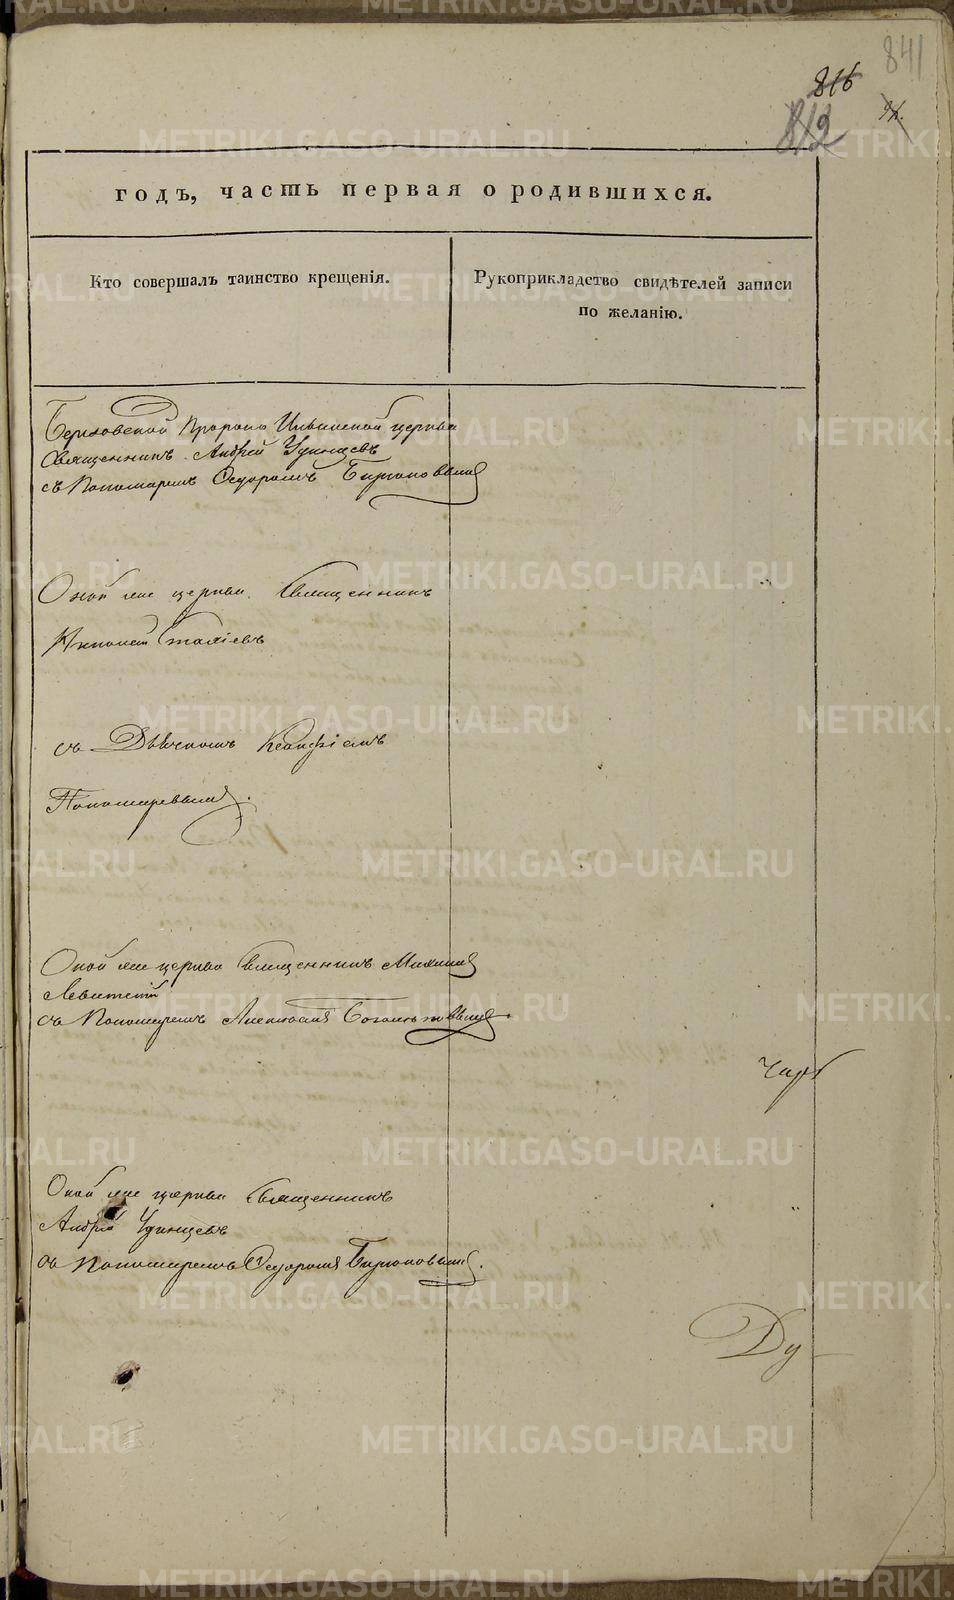 841
816
812
годъ, часть первая о родившихся.
Кто совершалъ таинство крещенія.
Рукоприкладство свидѣтелей записи
по желанію.
Пророко Ильинской церкви
Священникъ Андрей Удинцевъ
съ Пономаремъ Ѳедоромъ Бирюковымъ
Оной же церкви Священникъ
съ Дьячкомъ
Пономаревымъ.
Оной же церкви Священникъ Михаилъ
Левитскій
съ Пономаремъ
Оной же церкви Священникъ
Андрей Удинцевъ
съ Пономаремъ Ѳедоромъ Бирюковымъ.
Ду
METRIKI.GASO-URAL.RU